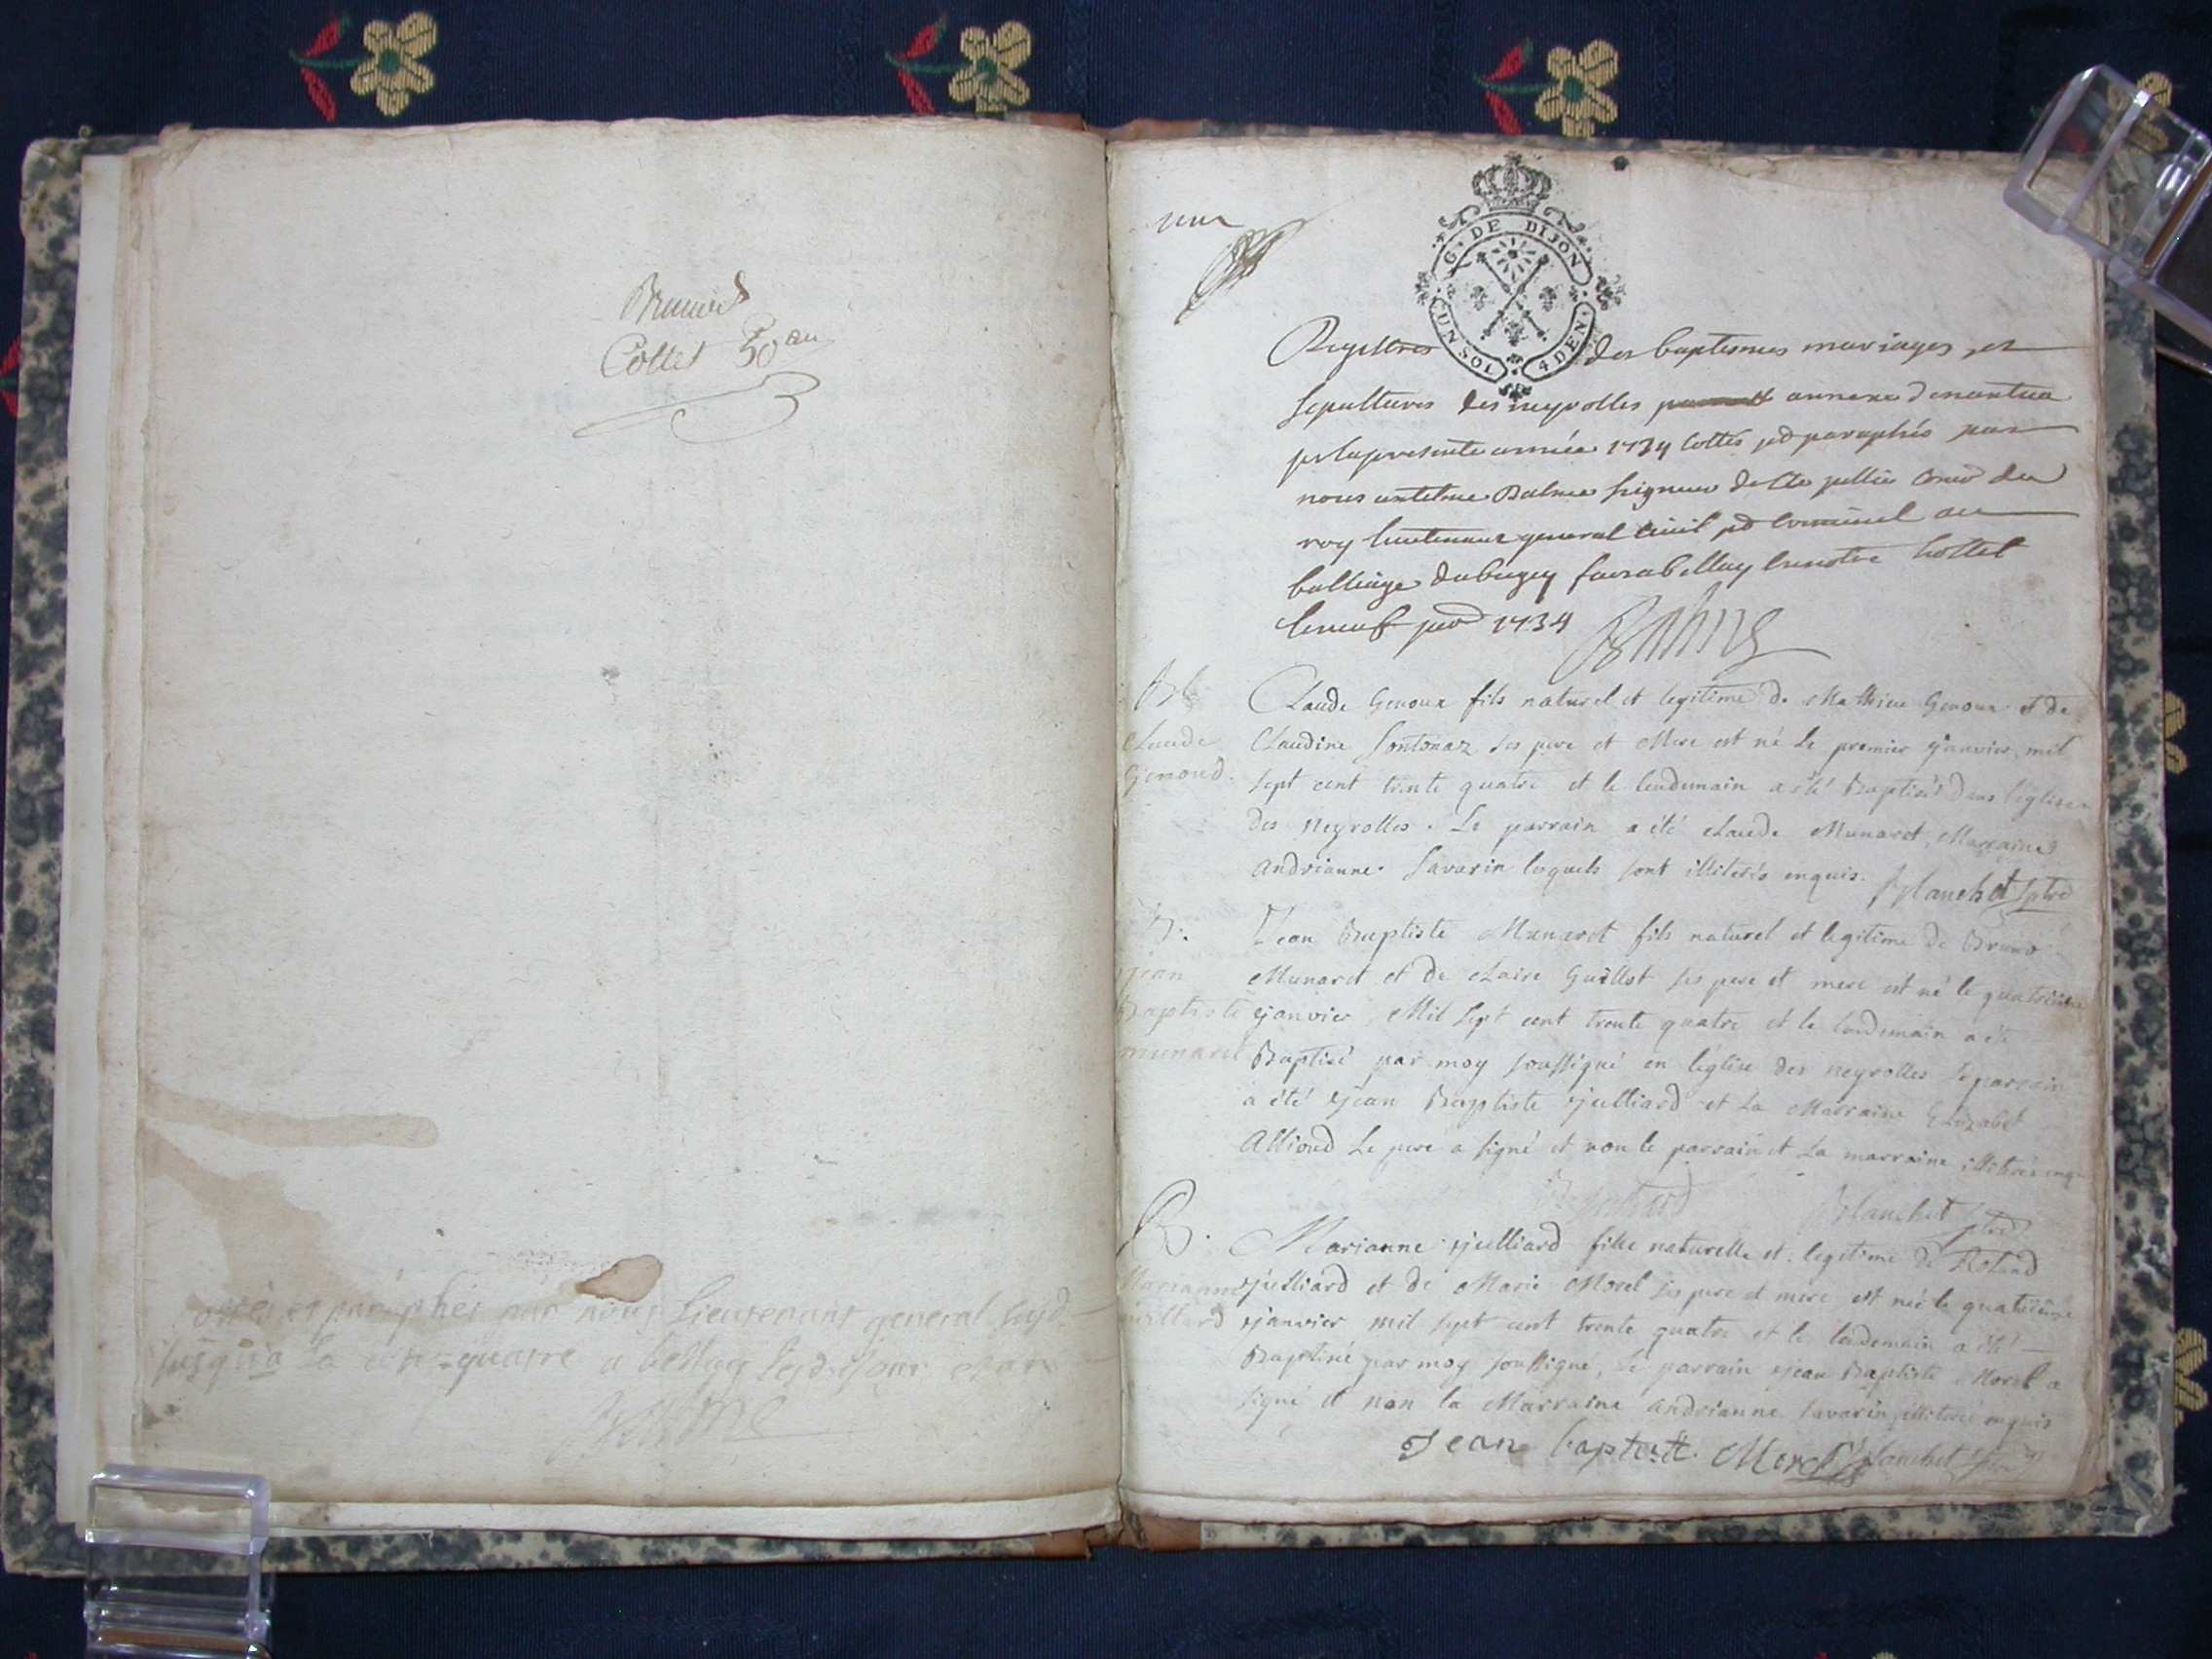 Collet 50
cottés et paraphés par nous Lieutenant general susd
jusqu'a la a belley lesd jour et an
Balme
G. DE DIJON
UN SOL 4 DEN.
Registres des baptesmes mariages et
sepultures des neyrolles annexe de nantua
pr la presente année 1734 cottés et paraphés par
nous Balme seigneur de Ste du
roy lieutenant general civil et criminel au
balliage du bugey a Bellay hostel
le neuf 1734 Balme
B
Claude
Genoud.
Claude Genoux fils naturel et legitime de Mathieu Genoux et de
Claudine Sontonaz ses pere et Mere est né le premier janvier mil
sept cent trente quatre et le lendemain a été Baptisé Dans l'eglise
des Neyrolles. Le parrain a été claude Munaret, Marraine
andrianne Savarin lesquels sont illiterés enquis. Blanchet
B.
jean
Baptiste
munaret
Jean Baptiste Munaret fils naturel et legitime de Bruno
Munaret et de claire Guillot ses pere et mere est né le quatrieme
janvier Mil sept cent trente quatre et le lendemain a été
Baptisé par moy soussigné en l'eglise des neyrolles le parrain
a été jean Baptiste julliard et la Marraine Elizabet
Alliond Le pere a signé et non le parrain et la marraine illiterés enq
Blanchet
B.
Marianne
juilliard
Marianne julliard fille naturelle et legitime de Roland
julliard et de Marie Morel ses pere et mere est née le quatrieme
janvier mil sept cent trente quatre et le lendemain a été
Baptisée par moy soussigné, le parrain jean Baptiste Morel a
signé et non la Marraine andrianne savarin illiterée enquis
Jean baptiste Morel Blanchet